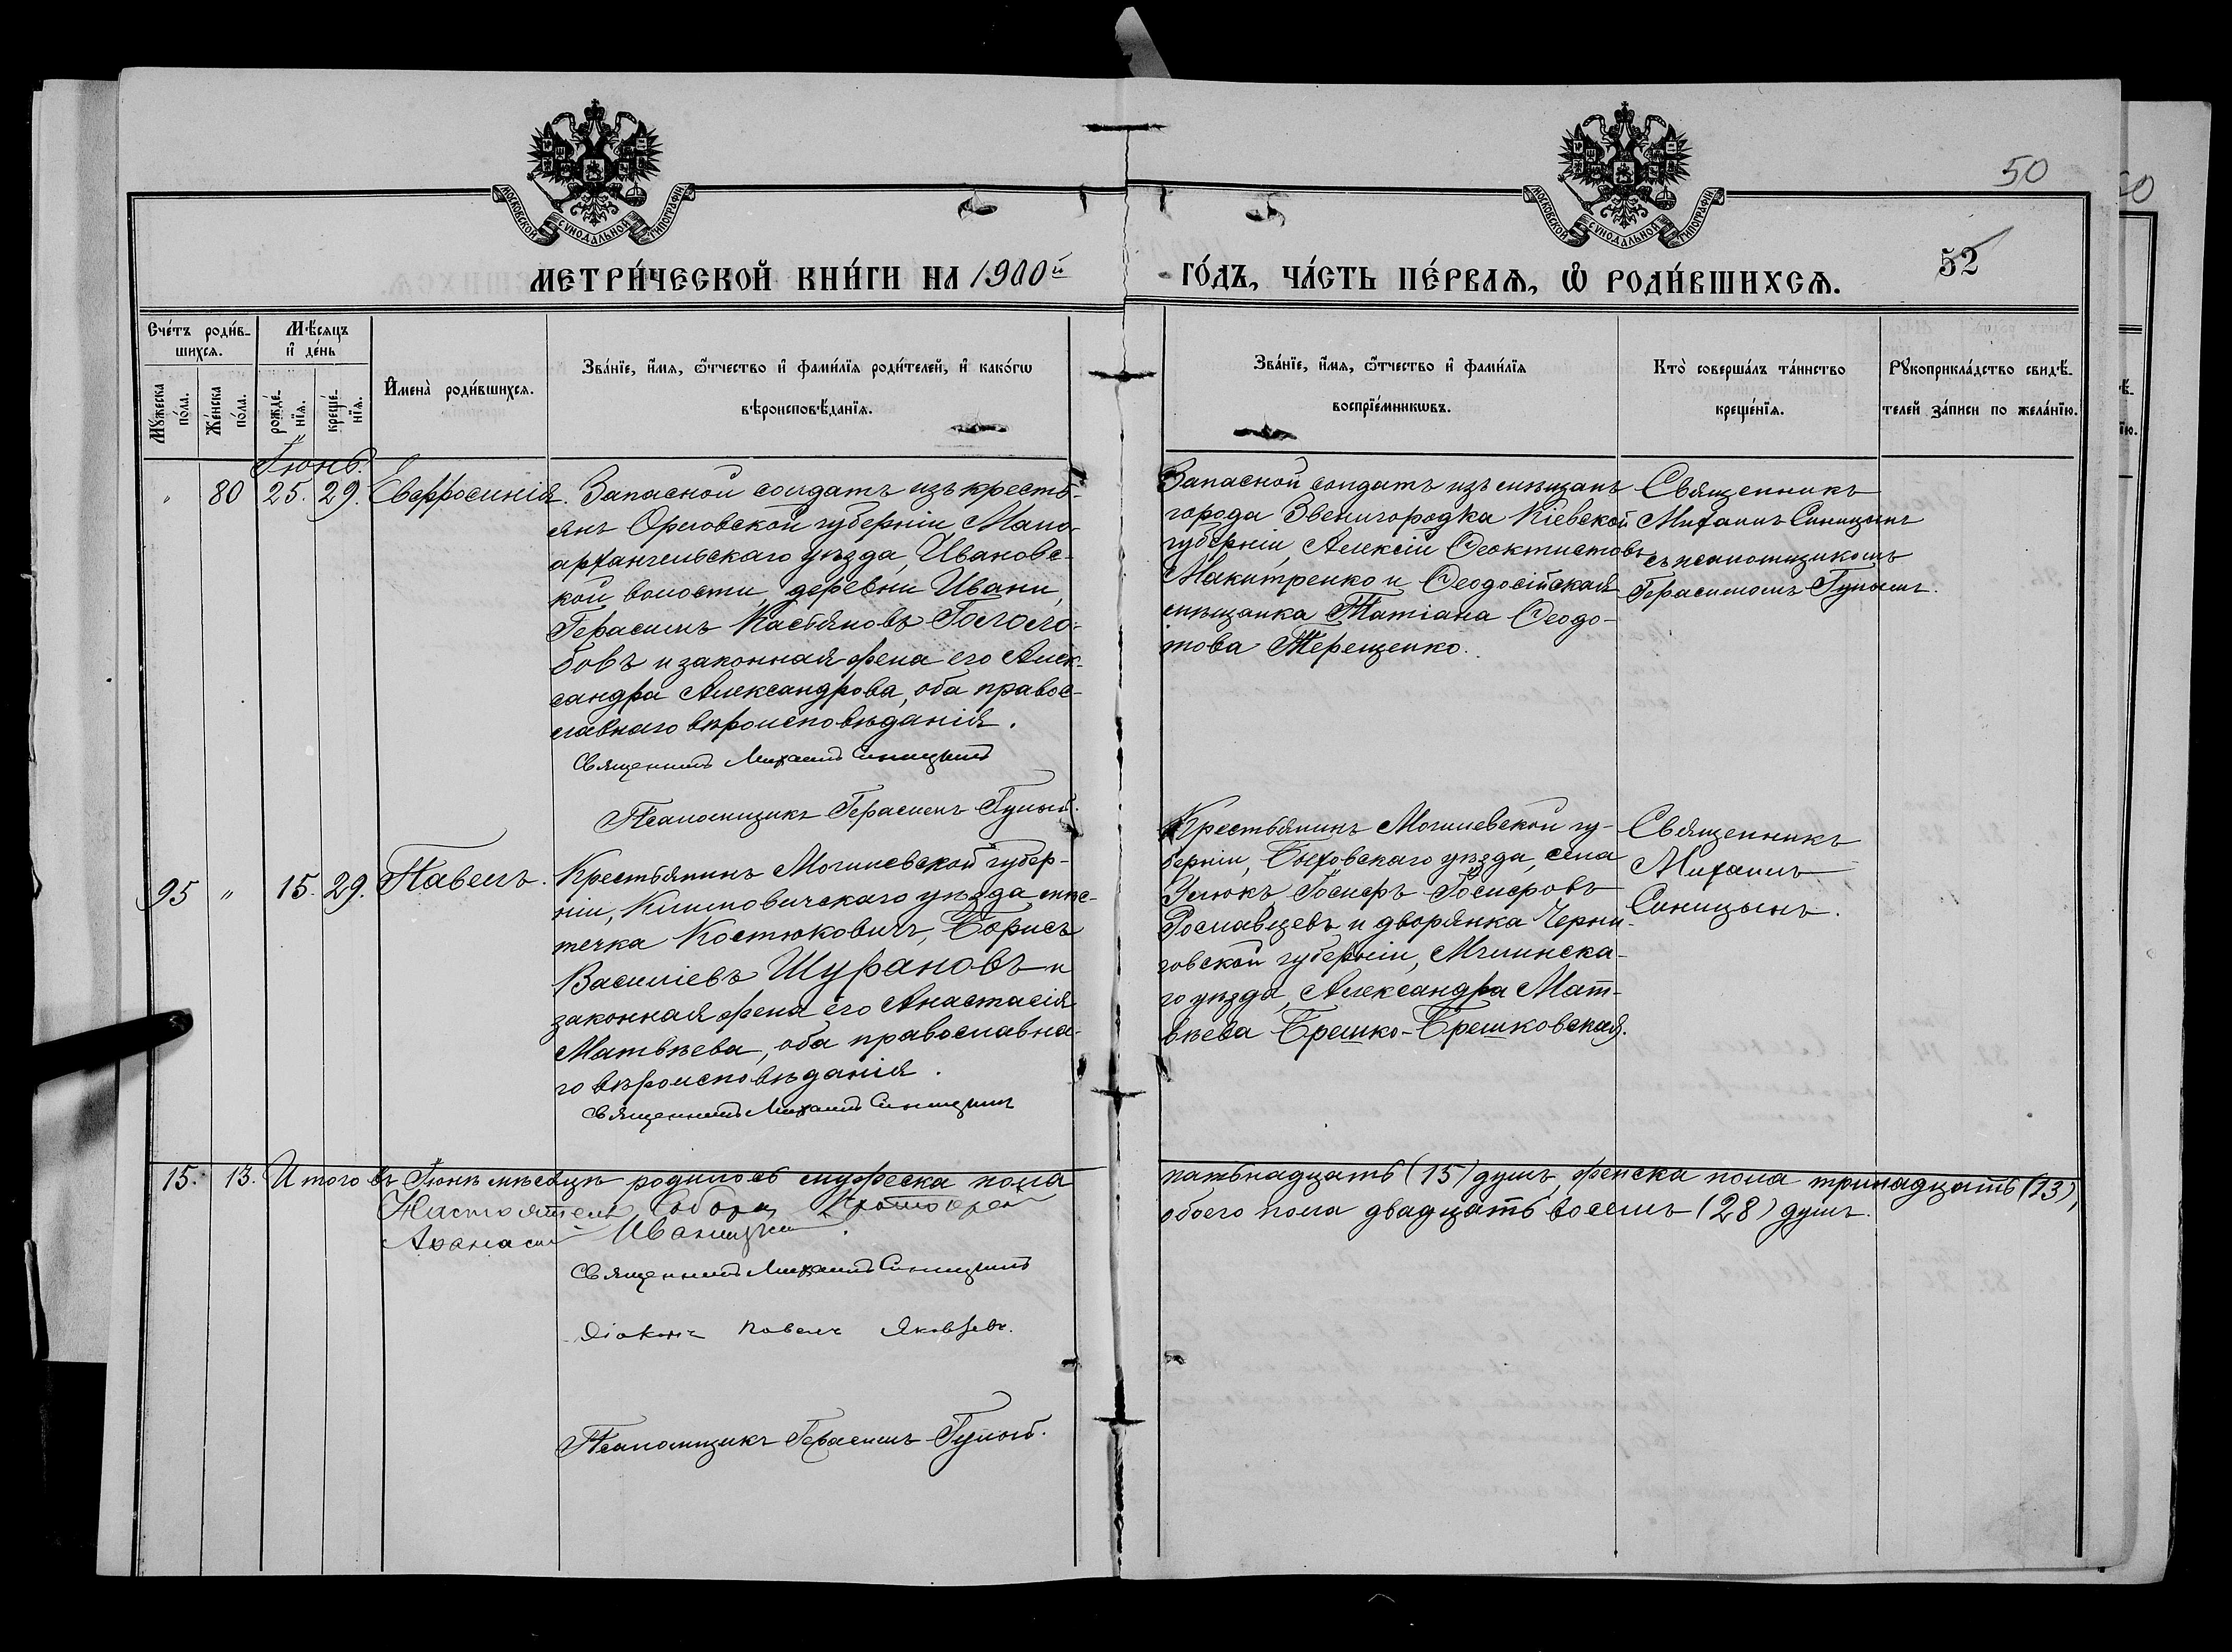 50
52
МОСКОВСКОЙ СѴНОДАЛЬНОЙ ТИПОГРАФІИ
МОСКОВСКОЙ СѴНОДАЛЬНОЙ ТИПОГРАФІИ
МЕТРИ́ЧЕСКОЙ КНИ́ГИ НА 1900й
ГО́ДЪ, ЧА́СТЬ ПЕ́РВАЯ, Ѡ РОДИ́ВШИХСЯ.
Сче́тъ роди́в-
шихся.
Мѣ́сяцъ
и де́нь
Мꙋ́жеска
по́ла.
Же́нска
по́ла.
рожде́-
нїя.
креще́-
нїя.
Имена̀ роди́вшихся.
Зва́нїе, и́мя, ѻ́тчество и фами́лїя роди́телей, и како́гѡ
вѣроисповѣ́данїя.
Зва́нїе, и́мя, ѻ́тчество и фами́лїя
воспрїе́мникѡвъ.
Кто̀ соверша́лъ та́инство
креще́нїя.
Рꙋкоприкла́дство свидѣ́-
телей за́писи по жела́нїю.
Іюнь.
" 80 25. 29. Евфросинія.
Запасной солдатъ изъ кресть-
янъ Орловской губерніи Мало-
архангельскаго уѣзда, Ивановс-
кой волости, деревни Ивани,
Герасимъ Касьяновъ Гологло-
бовъ и законная жена его Алек-
сандра Александрова, оба правос-
славнаго вѣроисповѣданія.
Священникъ Михаилъ Синицынъ
Псаломщикъ Герасимъ Гулый.
Запасной солдатъ изъ мѣщанъ
города Звенигородка Кіевской
губерніи, Алексій Ѳеоктистовъ
Макитренко и Ѳеодосійская
мѣщанка Татіана Ѳеодо-
това Терещенко.
Священникъ
Михаилъ Синицынъ
съ псаломщикомъ
Герасимомъ Гулымъ.
95 " 15. 29. Павелъ.
Крестьянинъ Могилевской губер-
ніи, Климовичскаго уѣзда, мѣс-
течка Костюковичъ, Борисъ
Василіевъ Шурановъ и
законная жена его Анастасія
Матвѣева, оба православна-
го вѣроисповѣданія.
Священникъ Михаилъ Синицынъ
Крестьянинъ Могилевской гу-
берніи, Быховскаго уѣзда, села
Іосифъ Іосифовъ
Рославцевъ и дворянка Черни-
говской губерніи, Мглинска-
го уѣзда, Александра Мат-
вѣева Брешко-Брешковская.
Священникъ
Михаилъ
Синицынъ.
15. 13. Итого въ Іюнѣ мѣсяцѣ родилось мужеска пола
патьнадцать (15) душъ, женска пола тринадцать (13),
обоего пола двадцать восемь (28) душъ.
Настоятель Собора Протоіерей
Аѳанасій Иваницкій.
Священникъ Михаилъ Синицынъ
Діаконъ Павелъ Яковлевъ.
Псаломщикъ Герасимъ Гулый.